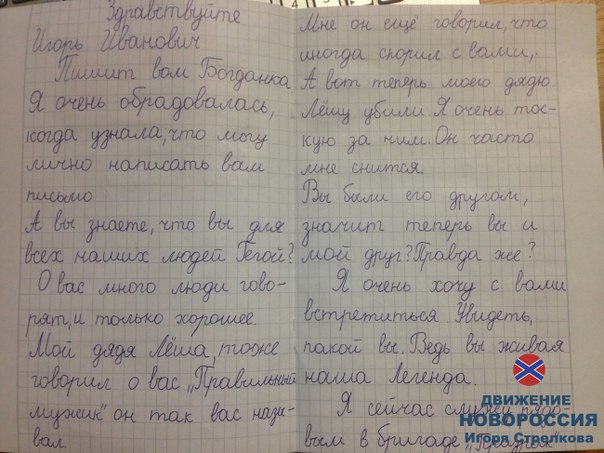 Здравствуйте
Игорь Иванович
Пишит вам Богданка
Я очень обрадовалась,
когда узнала, что могу
лично написать вам
письмо
А вы знаете, что вы для
всех наших людей Герой?
О вас много люди гово-
рят, и только хорошее.
Мой дядя Лёша, тоже
говорил о вас „Правильный
мужик" он так вас назы-
вал.
Мне он ещё говорил, что
иногда спорил с вами,.
А вот теперь моего дядю
Лёшу убили Я очень тос-
кую за ним. Он часто
мне снится.
Вы были его другом,
значит теперь вы и
мой друг? Правда же?
Я очень хочу с вами
встретиться. Увидеть,
какой вы. Ведь вы живая
наша Легенда.
Я сейчас служу рядо-
вым в бригаде „Призрак"
ДВИЖЕНИЕ
НОВОРОССИЯ
Игоря Стрелкова